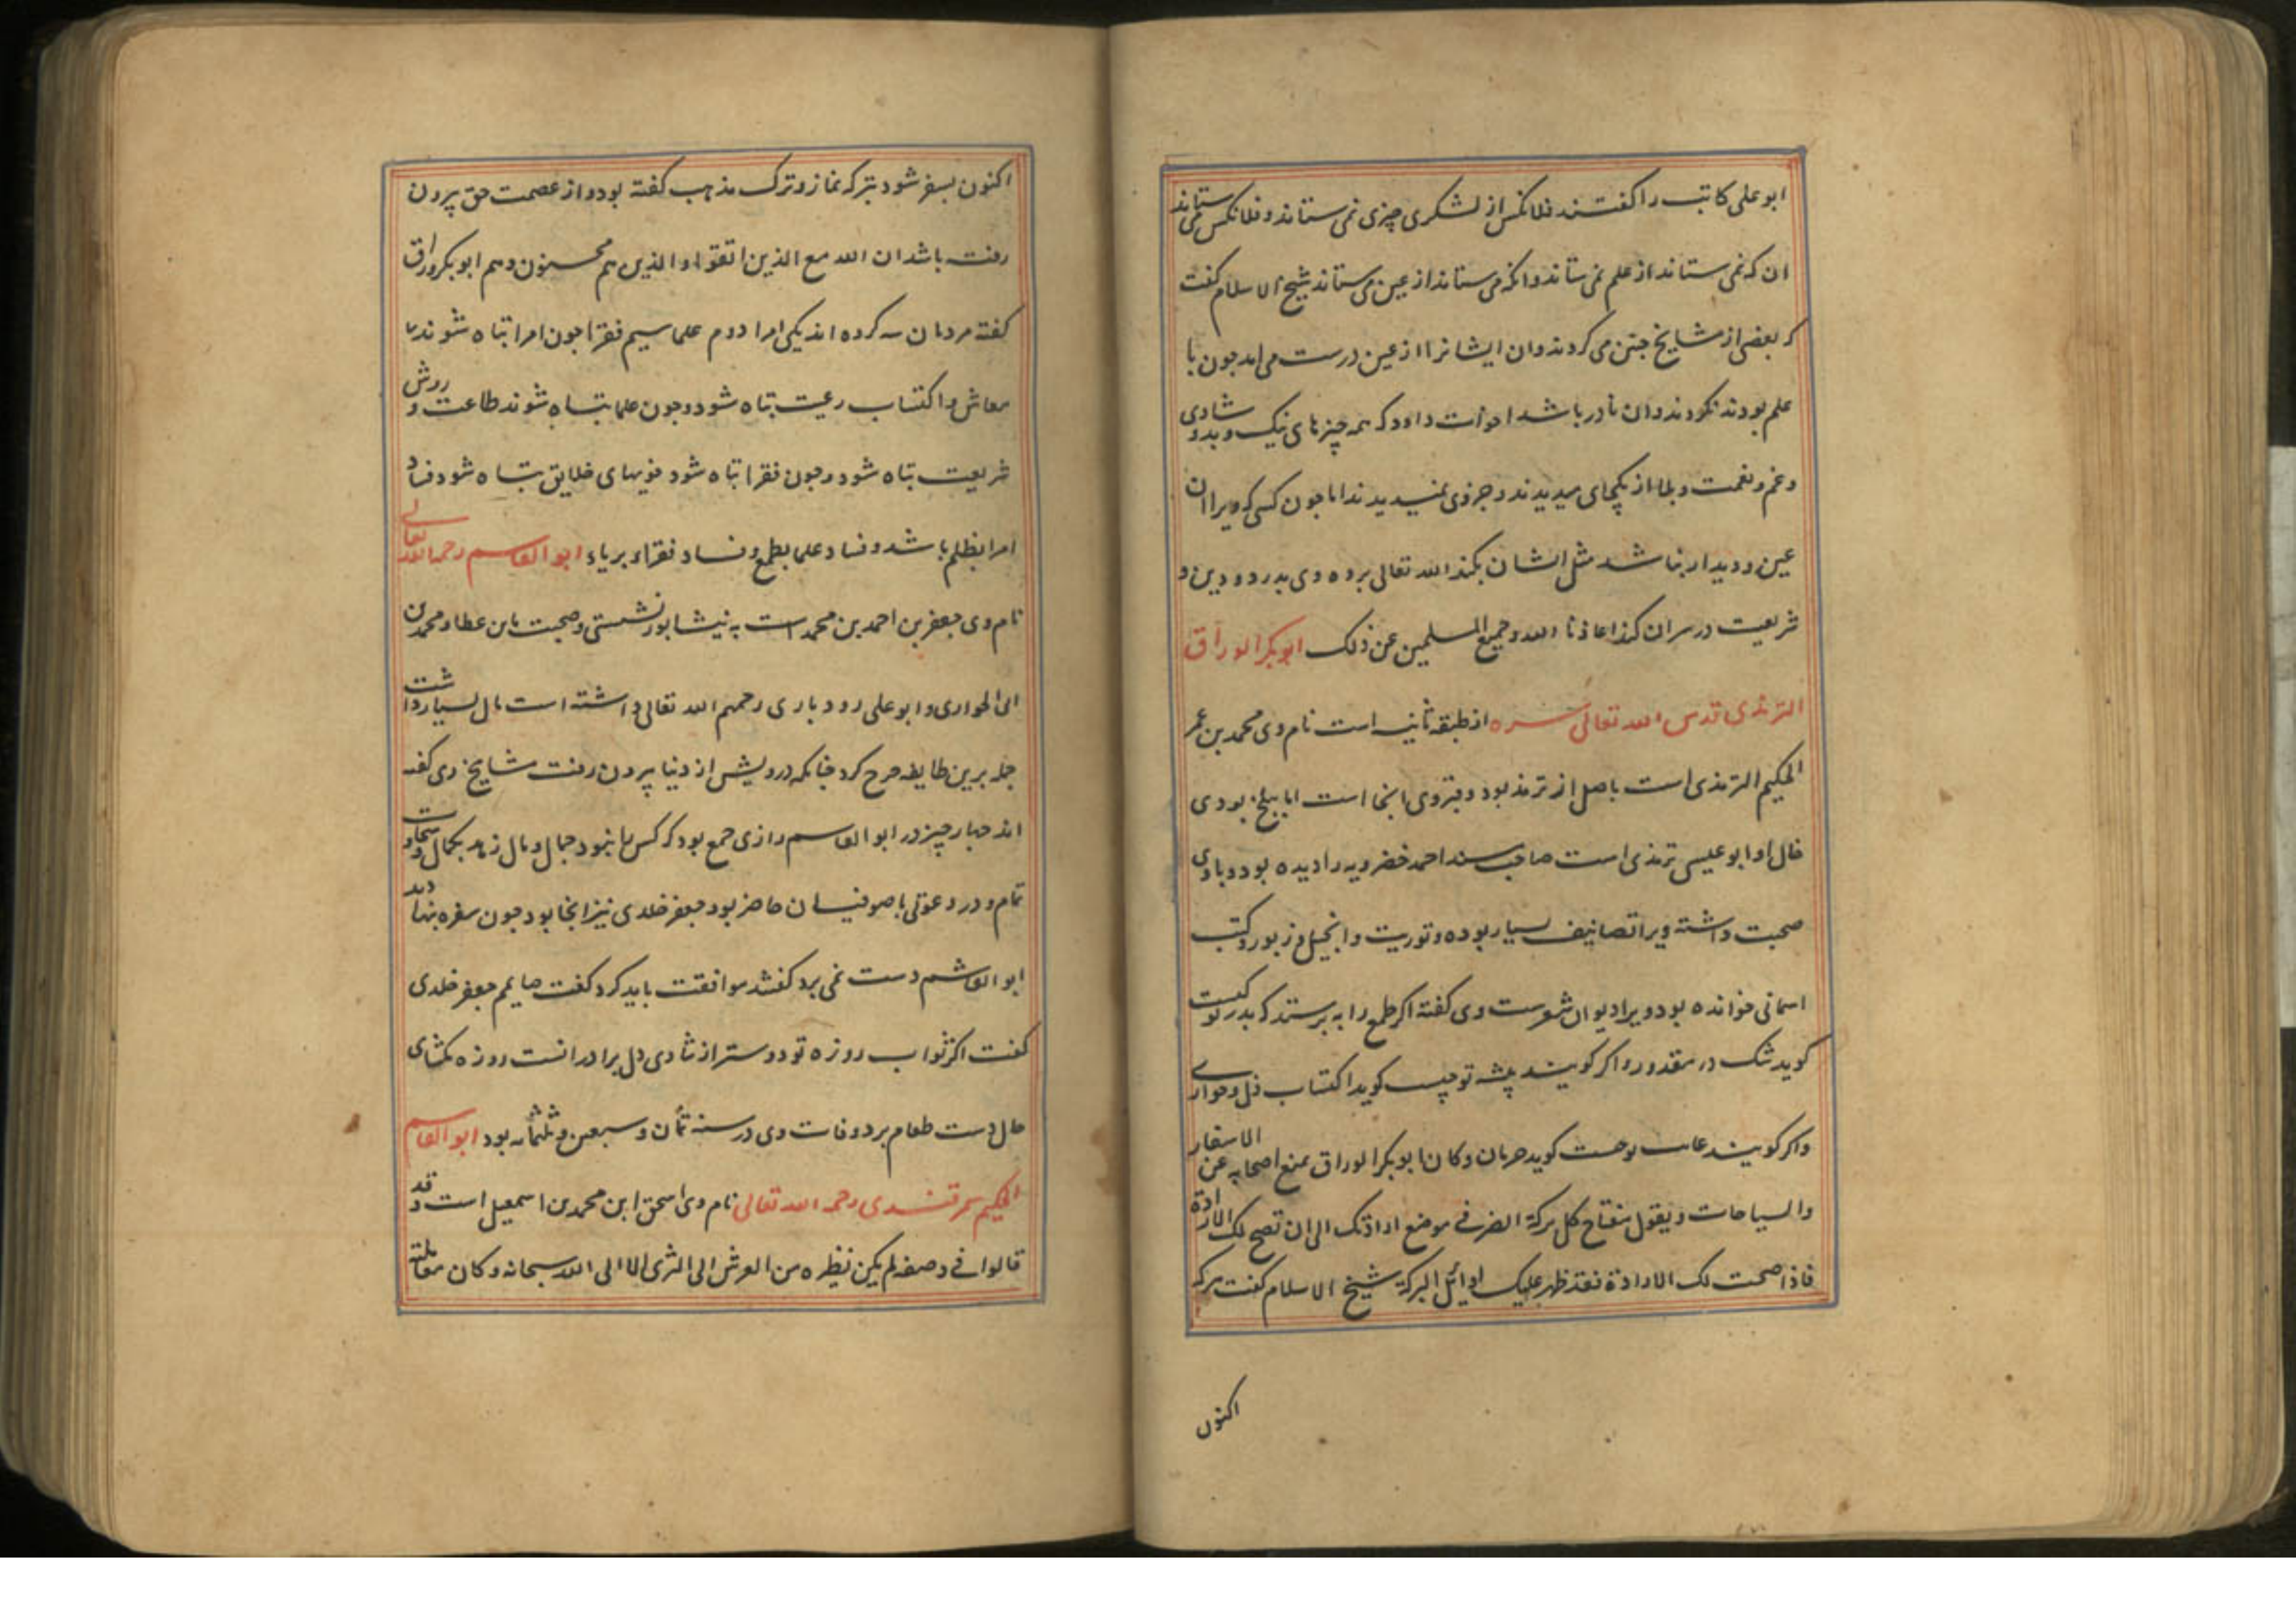 ابو علی کاتب را کفتند فلانکس از لشکری چیزی نمی ستاند و فلانکس می ستاند
ان که نمی ستاند از علم نمی ستاند وانکه می ستاند از عین می ستاند شیخ الاسلام کفت
که بعضی از مشایخ جنین می کردند وان ایشانرا از عین درست می امد جون با
علم بودند نکردند وان نادر باشد احوات داود که همه چیزهای نیک و بد و شادی
و غم و نعمت و بلا از یکجای میدیدند و جز وی نمیدیدند اما جون کسی که ویرا ان
عین و دیدار نباشد مثل ایشان بکند الله تعالی برده وی بدرد و دین و
شریعت در سر ان کند اعاذنا الله و جمیع المسلمین عن ذلک ابوبکر الوراق
الترمذی قدس الله تعالی سره از طبقه ثانیه است نام وی محمد بن عمر
الحکیم الترمذی است باصل از ترمذ بود و قبر وی انجا است اما ببلخ بودی
خال او ابو عیسی ترمذی است صاحب سند احمد خضرویه را دیده بود و با وی
صحبت داشته ویرا تصانیف بسیار بوده و توریت و انجیل و زبور و کتب
اسمانی خوانده بود و یرا دیوان شعرست وی کفته اکر طمع را به پرستند که بدر تو کیست
کوید شک در مقدور و اکر کویند پیشه تو چیست کوید اکتساب ذل و خواری
واکر کویند غایت توجست کوید حرمان و کان ابو بکر الوراق یمنع اصحابه عن الاسفار
والسیاحات و یقول مفتاح کل برکة الصبر فی موضع ارادتک الی ان تصح لک الارادة
فاذا صحت لک الارادة فقد ظهر علیک اوائل البرکة شیخ الاسلام کفت هر که
اکنون
اکنون بسفر شود بترک نماز و ترک مذهب کفته بود و از عصمت حق بیرون
رفته باشد ان الله مع الذین اتقوا والذین هم محسنون و هم ابو بکر وراق
کفته مردمان سه کرده اند یکی امرا دوم علما سیم فقرا جون امرا تباه شوند
معاش و اکتساب رعیت تباه شود و جون علما تباه شوند طاعت و روش
شریعت تباه شود و جون فقرا تباه شود خویهای خلایق تباه شود فساد
امرا بظلم باشد و فساد علما بطمع و فساد فقراء بریاء ابو القاسم رحمه الله تعالی
نام وی جعفر بن احمد بن محمد است به نیشابور نشستی و صحبت بابن عطا و محمد بن
ابی الحواری و ابو علی رودباری رحمهم الله تعالی داشته است مال بسیار داشت
جمله برین طایفه خرج کرد جنانکه درویش از دنیا بیرون رفت مشایخ وی کفته
اند جهار چیز در ابو القاسم رازی جمع بود که کس را نبود جمال و مال زهد بکمال و سخاوت
تمام و در دعوتی با صوفیان حاضر بود جعفر خلدی نیز انجا بود جون سفره بنهادند
ابو القاسم دست نمی برد کفتند موافقت باید کرد کفت صایمم جعفر خلدی
کفت اکر ثواب روزه تو دوستر از شادی دل برادر انست روزه مکشای
حال دست طعام برد وفات وی در سنه ثمان و سبعین و ثلثمائه بود ابو القاسم
الحکیم سمرقندی رحمه الله تعالی نام وی اسحق ابن محمد بن اسمعیل است و قد
قالوا فی وصفه لم یکن نظره من العرش الی الثری الا الی الله سبحانه و کان معاملته